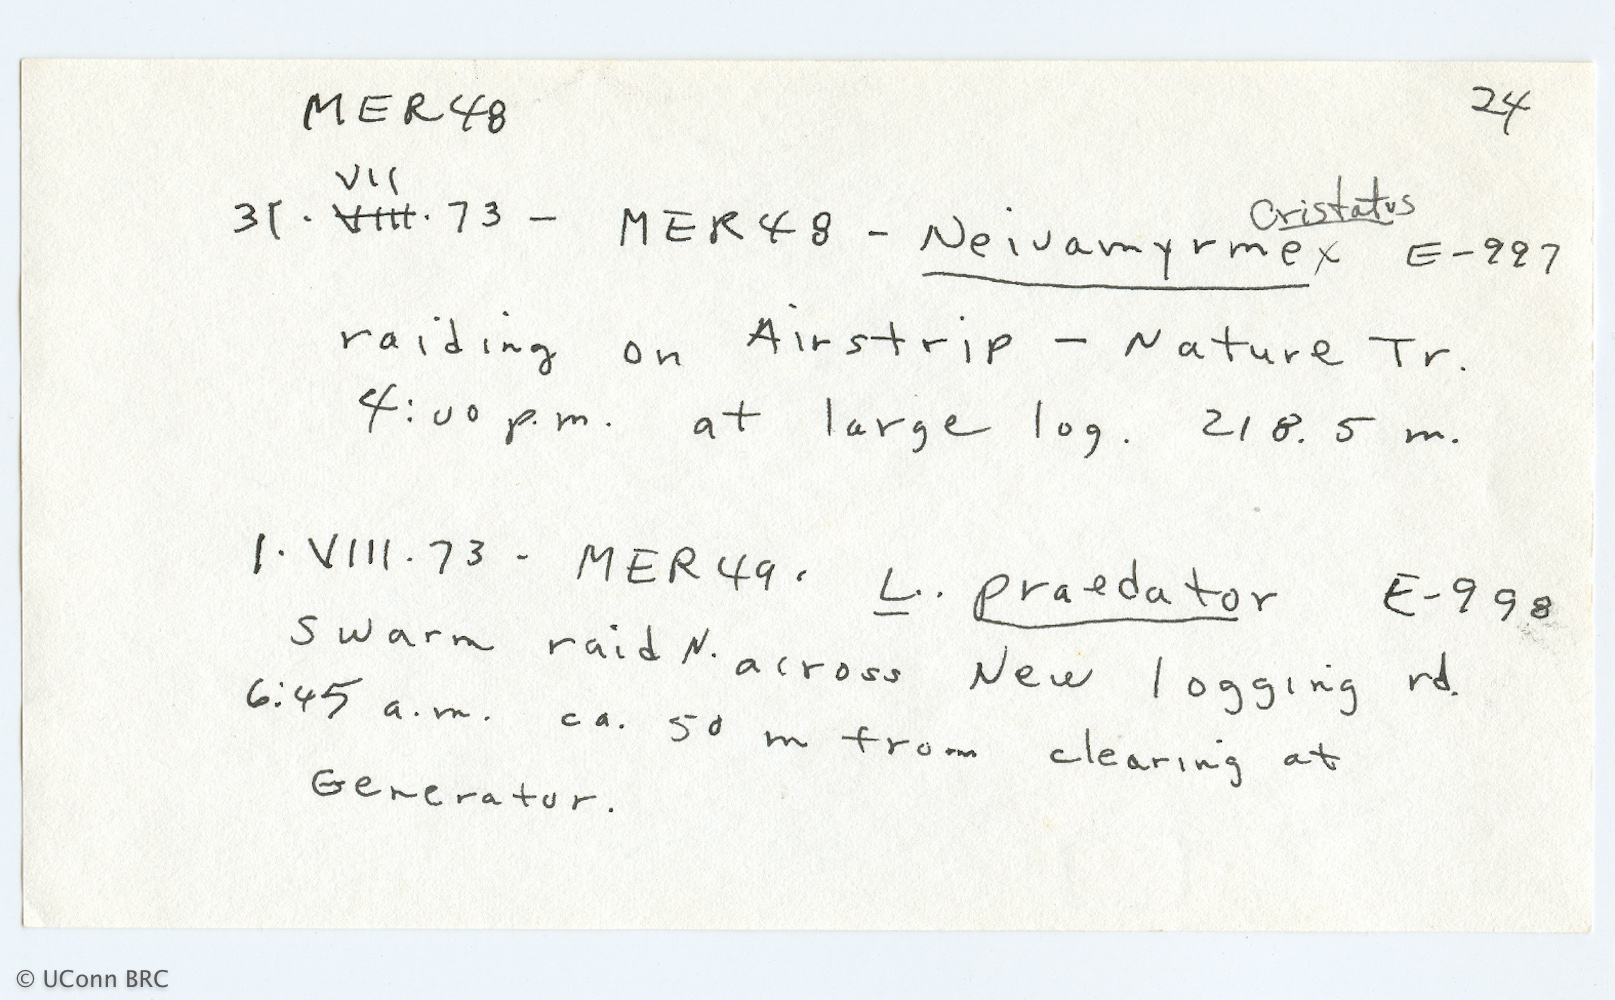 MER48
24
VII
31. VIII. 73 - MER48 - Neivamyrmex cristatus E-997
raiding on Airstrip - Nature Tr.
4:00 p.m. at large log. 218.5 m.
1. VIII. 73 - MER49. L. praedator E-998
swarm raid N. across New logging rd.
6:45 a.m. ca. 50 m from clearing at
Generator.
© UConn BRC